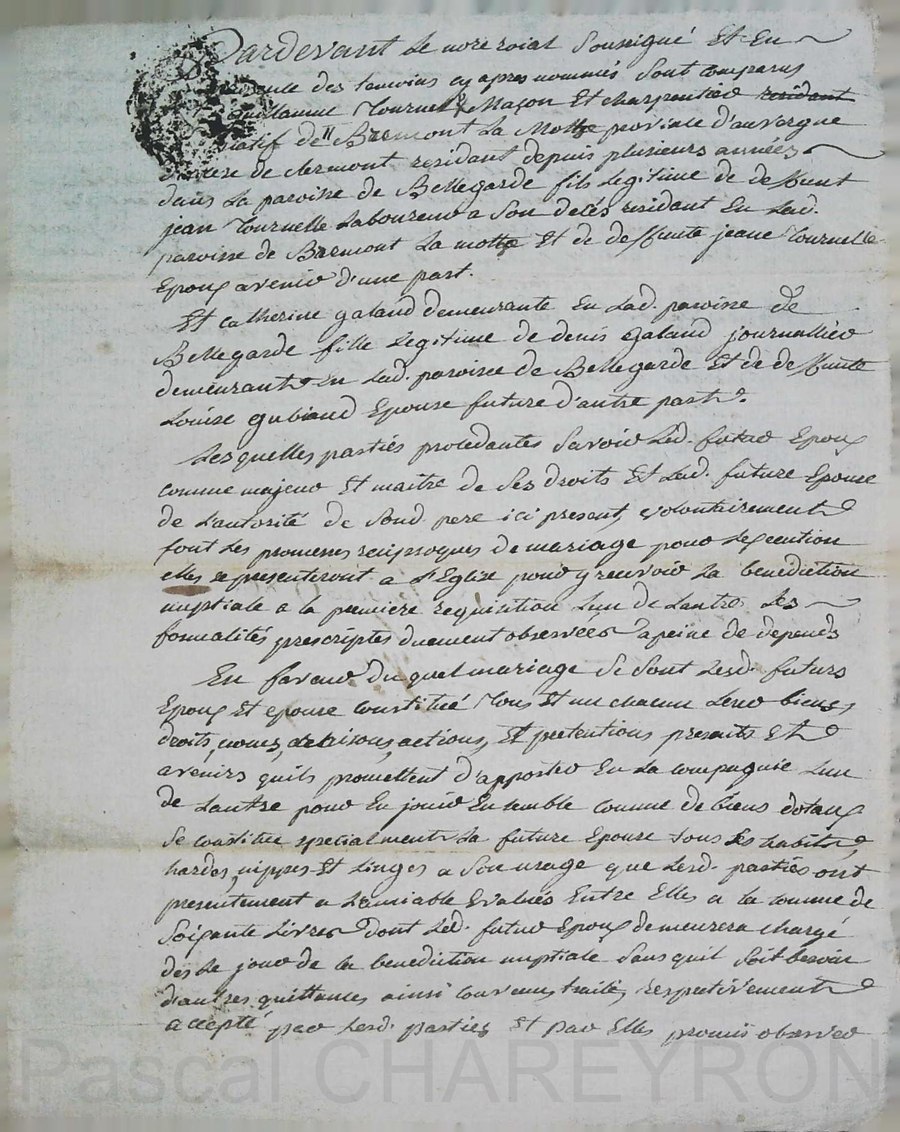 Pardevant Le no.re roial Soussigné Et En
presence des temoins cy apres nommés Sont comparus
Guillaume Tournelle Maçon Et charpentier residant
natif de Bremont La Mothe province d'auvergne
diocese de clermont residant depuis plusieurs années
dans La paroisse de Bellegarde fils Legitime de deffunt
jean Tournelle Laboureur a Son decés residant En Lad.
paroisse de Bremont La mothe Et de deffunte jeane Tournelle
Epoux avenir d'une part.
Et catherine galand demeurante En Lad. paroisse de
Bellegarde fille Legitime de denis Galand journallier
demeurant En Lad. paroisse de Bellegarde Et de deffunte
Louise gubiand Epouse future d'autre part
Lesquelles parties procedantes Savoir Led. futur Epoux
comme majeur Et maitre de Ses droits Et Lad. future Epouse
de L'autorité de Sond. pere ici present, volontairement
font Les promesses reciproques de mariage pour Lexecution
elles se presenteront a L'Eglise pour y recevoir La benediction
nuptiale a la premiere requisition Lun de Lautre Les
formalités prescriptes duement observées a peine de depends
En faveur du quel mariage Se Sont Lesd. futurs
Epoux Et epouse constitué Tous Et un chacun Leur biens,
droits, noms, debtisons, actions, Et pretentions presents Et
avenirs quils promettent d'apporter En La compagnie Lun
de Lautre pour En jouir Ensemble comme de biens dotaux
Se constitue specialment La future Epouse tous Ses habits,
hardes, nippes Et Linges a Son usage que Lesd. parties ont
presentement a Lamiable Evalués Entre Elles a la somme de
Soixante Livres Dont Led. futur Epoux demeurera chargé
dès Le jour de la benediction nuptiale Sans quil Soit besoin
d'autres quittances ainsi convenu, traité, respectivement
accepté par Lesd. parties Et par Elles promis observer
Pascal CHAREYRON